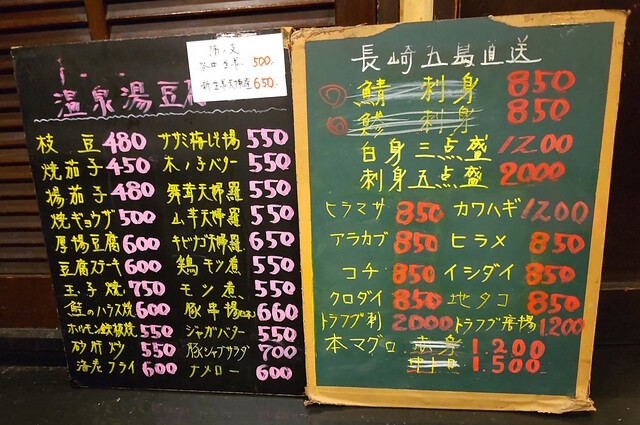 酒の友
500.
新生姜天婦羅 650.
温泉湯豆腐
枝豆 480 ササミ梅しそ揚 550
焼茄子 450 木ノ子バター 550
揚茄子 480 舞茸天婦羅 550
焼ギョウザ 500 山芋天婦羅 550
厚揚豆腐 600 キビナゴ天婦羅 650
豆腐ステーキ 600 鶏モツ煮 550
玉子焼 750 モツ煮 550
鮭のハラス焼 600 豚串揚 660
ホルモン鉄板焼 550 ジャガバター 550
砂肝炒 550 豚シャブサラダ 700
海老フライ 600 ナメロー 600
長崎五島直送
鯖刺身 850
鯵刺身 850
白身三点盛 1200
刺身五点盛 2000
ヒラマサ 850 カワハギ 1200
アラカブ 850 ヒラメ 850
コチ 850 イシダイ 850
クロダイ 850 地タコ 850
トラフグ刺 2000 トラフグ唐揚 1200
本マグロ 赤身 1.200
中トロ 1.500